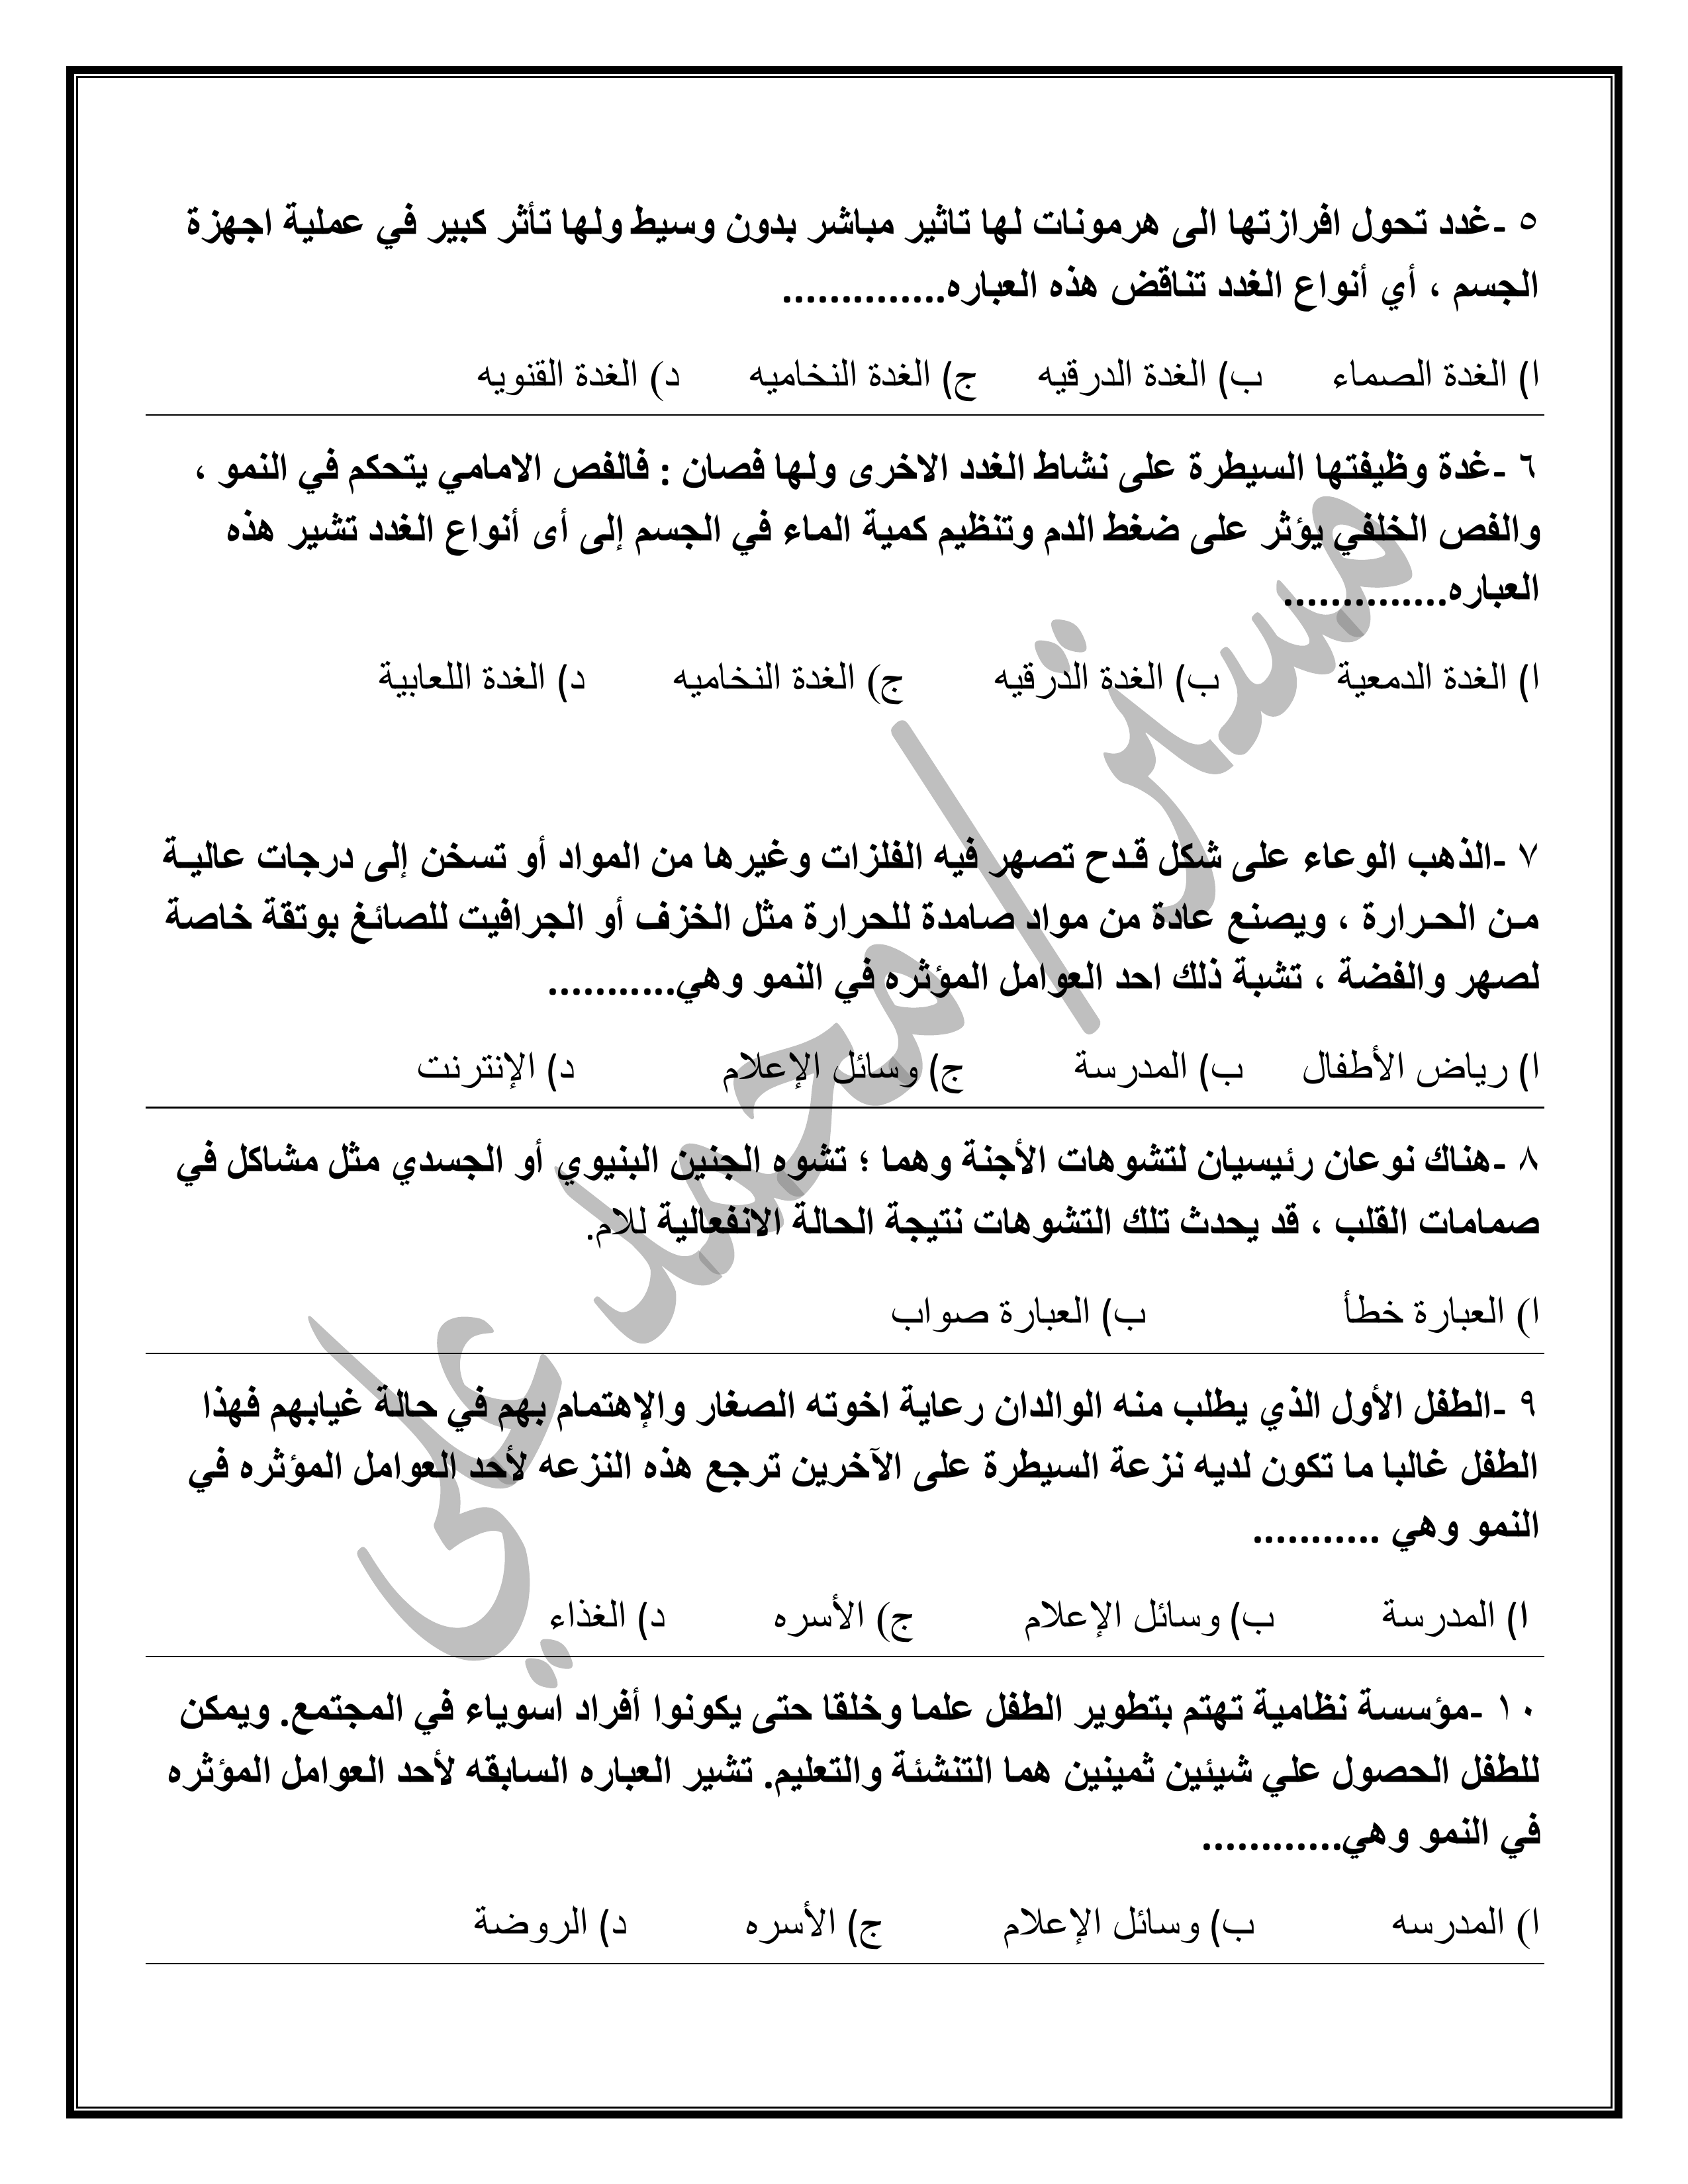 ٥ -غدد تحول افرازتها الى هرمونات لها تاثير مباشر بدون وسيط ولها تأثر كبير في عملية اجهزة
الجسم ، أي أنواع الغدد تناقض هذه العباره..............
ا) الغدة الصماء ب) الغدة الدرقيه ج) الغدة النخاميه د) الغدة القنويه
٦ -غدة وظيفتها السيطرة على نشاط الغدد الاخرى ولها فصان : فالفص الامامي يتحكم في النمو ،
والفص الخلفي يؤثر على ضغط الدم وتنظيم كمية الماء في الجسم إلى أى أنواع الغدد تشير هذه
العباره..............
ا) الغدة الدمعية ب) الغدة الدرقيه ج) الغدة النخاميه د) الغدة اللعابية
٧ -الذهب الوعاء على شكل قـدح تصهر فيه الفلزات وغيرها من المواد أو تسخن إلى درجات عاليـة
مـن الحـرارة ، ويصنع عادة من مواد صامدة للحرارة مثل الخزف أو الجرافيت للصائغ بوتقة خاصة
لصهر والفضة ، تشبة ذلك احد العوامل المؤثره في النمو وهي...........
ا) رياض الأطفال ب) المدرسة ج) وسائل الإعلام د) الإنترنت
٨ -هناك نوعان رئيسيان لتشوهات الأجنة وهما ؛ تشوه الجنين البنيوي أو الجسدي مثل مشاكل في
صمامات القلب ، قد يحدث تلك التشوهات نتيجة الحالة الانفعالية للام.
ا) العبارة خطأ ب) العبارة صواب
٩ -الطفل الأول الذي يطلب منه الوالدان رعاية اخوته الصغار والإهتمام بهم في حالة غيابهم فهذا
الطفل غالبا ما تكون لديه نزعة السيطرة على الآخرين ترجع هذه النزعه لأحد العوامل المؤثره في
النمو وهي ...........
ا) المدرسة ب) وسائل الإعلام ج) الأسره د) الغذاء
١٠ -مؤسسة نظامية تهتم بتطوير الطفل علما وخلقا حتى يكونوا أفراد اسوياء في المجتمع. ويمكن
للطفل الحصول علي شيئين ثمينين هما التنشئة والتعليم. تشير العباره السابقه لأحد العوامل المؤثره
في النمو وهي............
ا) المدرسه ب) وسائل الإعلام ج) الأسره د) الروضة
مستر/ محمد علي